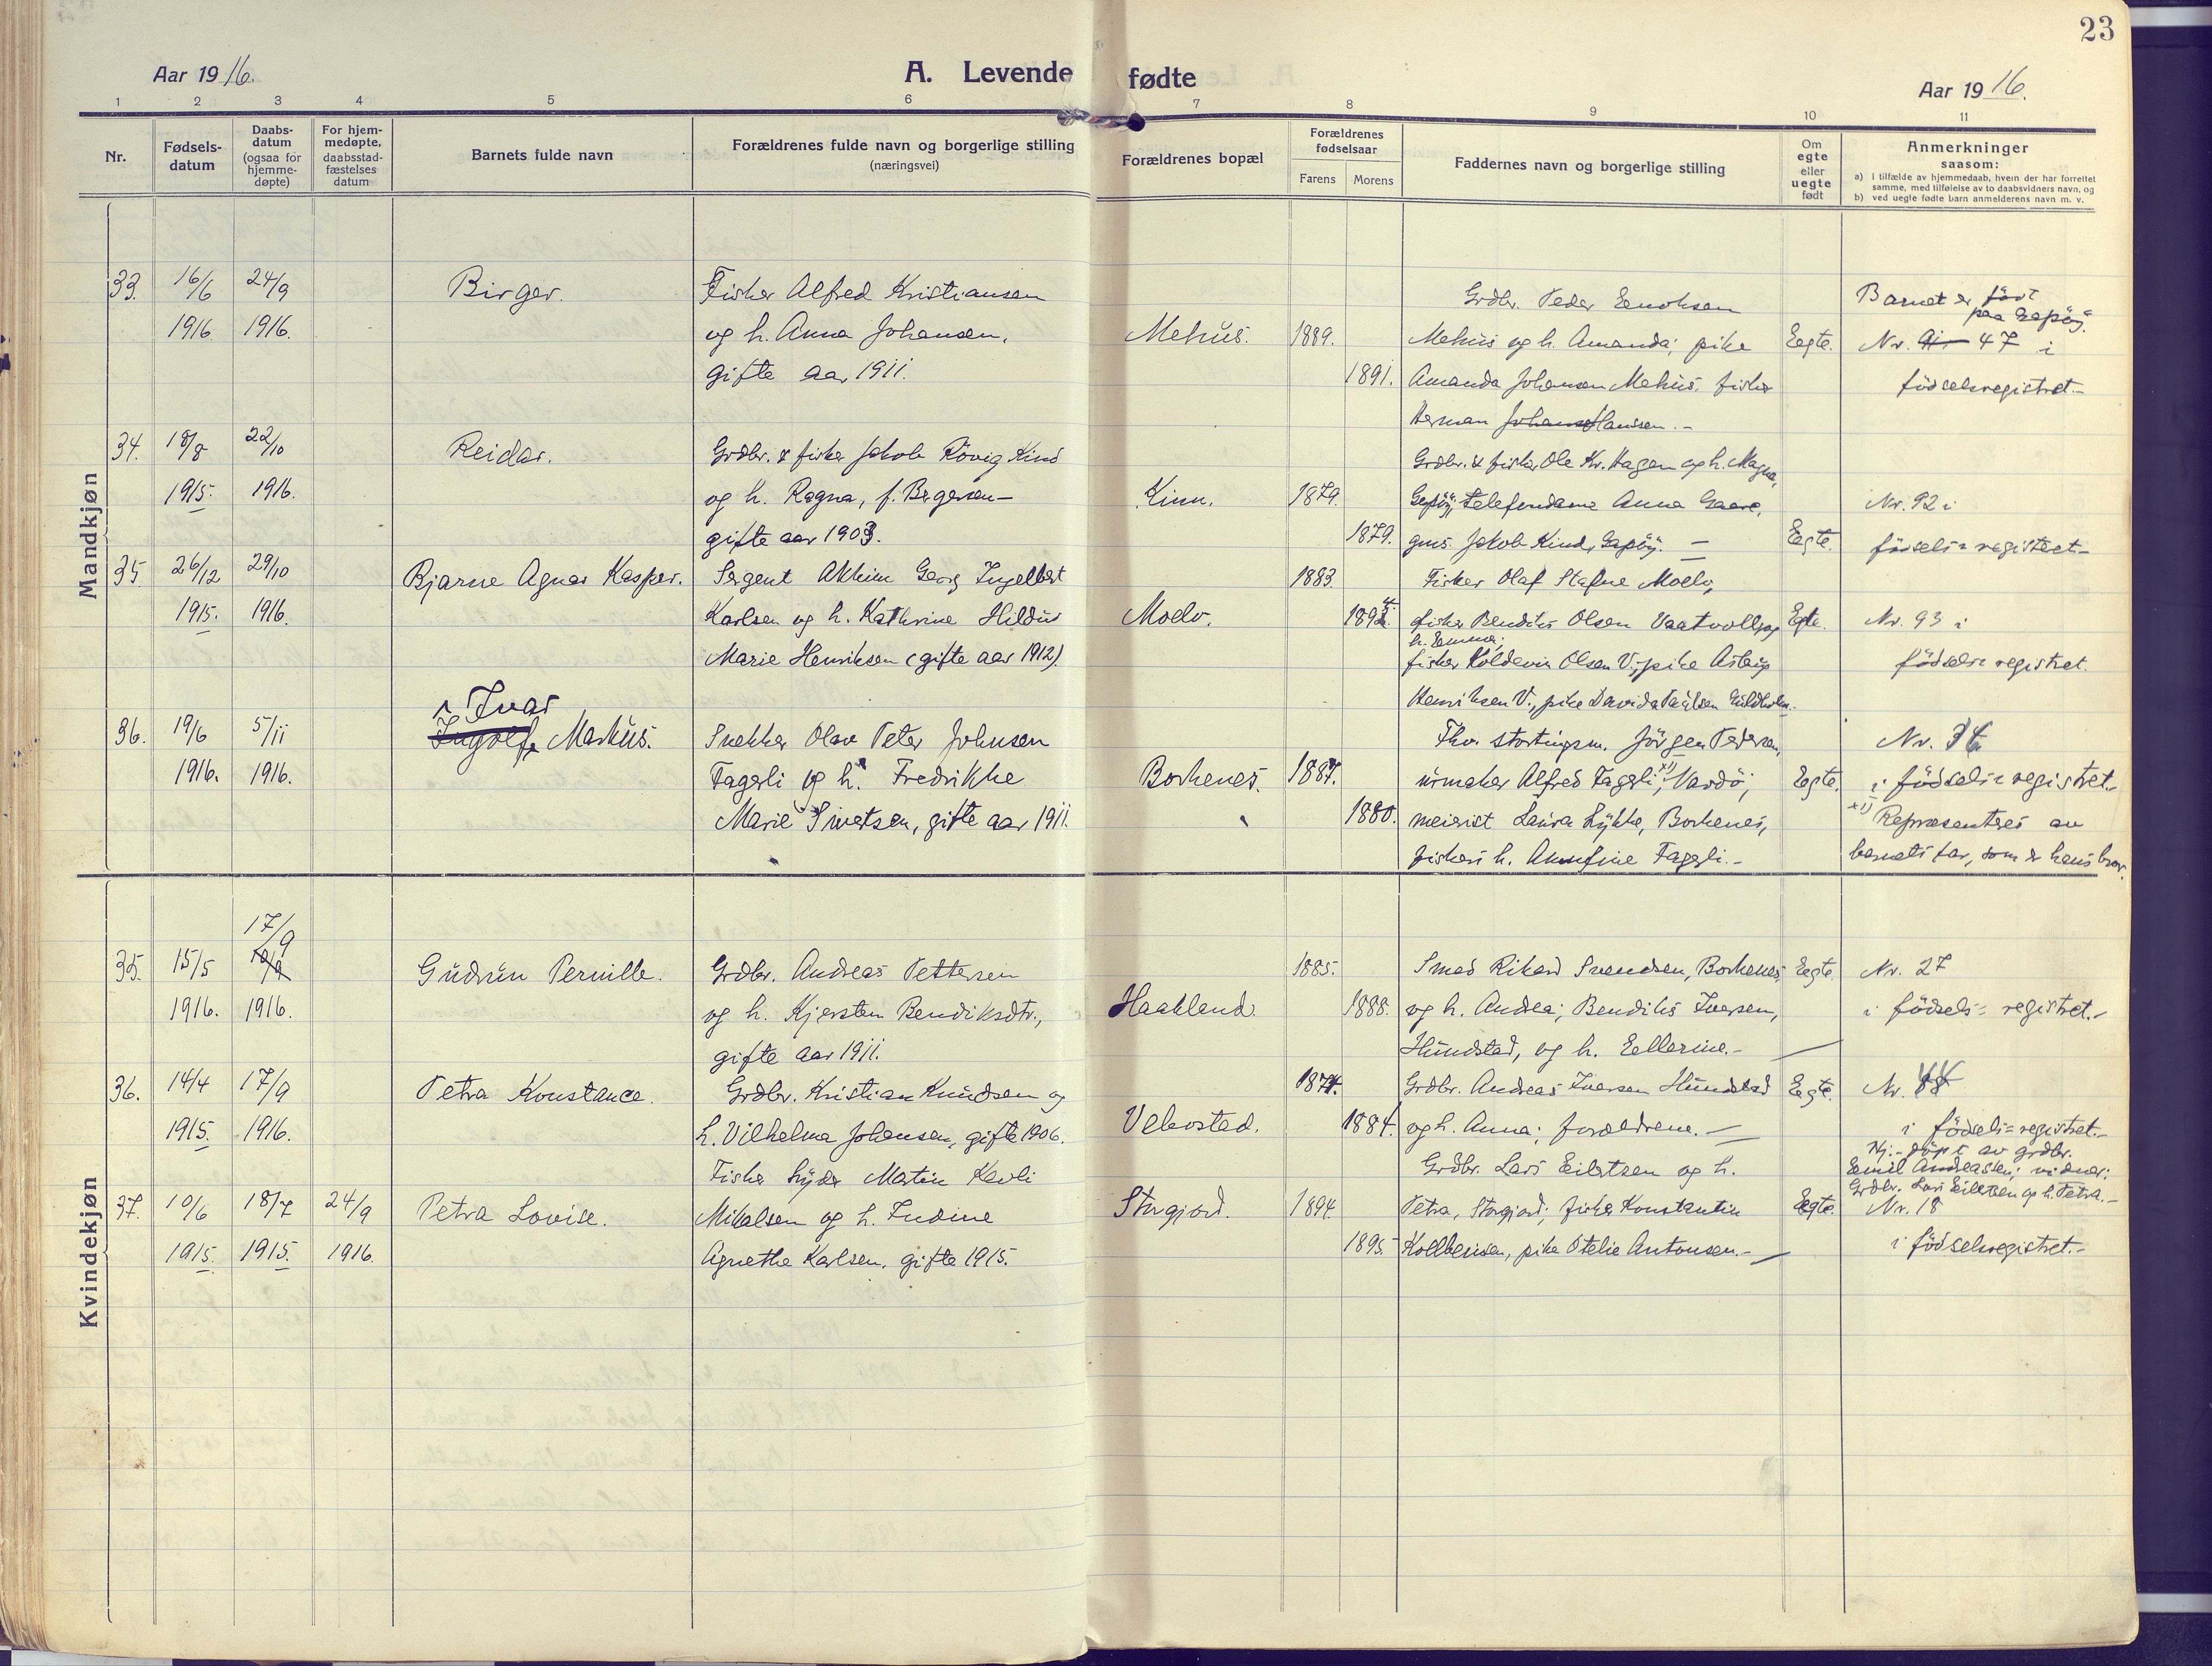 23
Aar 1916.
A. Levende fødte
Aar 1916.
1 2 3 4 5 6 7 8 9 10 11
Nr.
Fødsels-
datum
Daabs-
datum
(ogsaa for
hjemme-
døpte)
For hjem-
medøpte,
daabsstad-
fæstelses
datum
Barnets fulde navn
Forældrenes fulde navn og borgerlige stilling
(næringsvei)
Forældrenes bopæl
Forældrenes
fødselsaar
Farens Morens
Faddernes navn og borgerlige stilling
Om
egte
eller
uegte
født
Anmerkninger
saasom:
a) I tilfælde av hjemmedaab, hvem der har forrettet
samme, med tilføielse av to daabsvidners navn, og
b) ved uegte fødte barn anmelderens navn m. v.
Mandkjøn
33. 16/6 24/9
1916 1916.
Birger.
Fisker Alfred Kristiansen
og h. Anna Johansen,
gifte aar 1911.
Mehus.
1889.
1891.
Grdbr. Peder Enoksen
Mehus og h. Amanda; pike
Amanda Johansen Mehus, fisker
Herman Hansen.-
Egte.
Barnet er født
paa Gapøy.
Nr. 47 i
fødselsregistret.-
34. 18/8 22/10
1915. 1916.
Reidar.
Grdbr. & fisker Jakob Røvig Kind
og h. Ragna, f. Bergersen-
gifte aar 1903.
Kinn.
1879.
1879.
Grdbr. & fisker Ole Kr. Hagen og h. Magna,
Gapøy; telefondame Anna Gaare,
gms. Jakob Kind, Gapøy. -
Egte.
Nr. 92 i
fødsels= registret-
35 26/12 29/10
1915. 1916.
Bjarne Agnar Kasper.
Sergent Akhim Georg Ingelbert
Karlsen og h. Kathrine Hildur
Marie Henriksen (gifte aar 1912)
Moelv.
1883.
1894.
Fisker Olaf Stefne Moelv,
fisker Bendiks Olsen Vaatvoll og
h. Emma;
fisker Koldevin Olsen V; pike Aslaug
Henriksen V., pike Davida Paulsen Guldholm.-
Egte.
Nr. 93 i
fødsels= registret.
36. 19/6 5/11
1916. 1916.
Ivar
Ingolf Markus.
Snekker Olav Peter Johnsen
Fagerli og h. Fredrikke
Marie Sivertsen, gifte aar 1911.
Borkenes.
1887.
1880.
Fhv. stortingsm. Jørgen Pedersen,
urmaker Alfred Fagerli x1), Vardø;
meierist Laura Lykke, Borkenes,
fiskers h. Annfine Fagerli.-
Egte.
Nr. 36
i fødsels= registret.-
x1) Repræsenteres av
barnets far, som er hans bror.
Kvindekjøn
17/9
35. 15/5
1916. 1916.
Gudrun Pernille.
Grdbr. Andreas Pettersen
og h. Kjersten Bendiksdtr.,
gifte aar 1911.
Haakland.
1885.
1888.
Smed Rikard Svendsen, Borkenes,
og h. Andrea; Bendiks Iversen,
Hundstad, og h. Ellerine.-
Egte.
Nr. 27
i fødsels= registret.-
36. 14/4 17/9
1915. 1916.
Petra Konstance.
Grdbr. Kristian Knudsen og
h. Vilhelma Johansen, gifte 1906.
Vebostad.
1874.
1884.
Grdbr. Andreas Iversen Hundstad
og h. Anna; forældrene. -
Egte.
Nr.
i fødsels=registret.-
37. 10/6 18/7 24/9
1915. 1915. 1916.
Petra Lovise.
Fisker Lyder Martin Kavli
Mikalsen og h. Indine
Agnethe Karlsen, gifte 1915.
Storjord.
1894.
1895
Grdbr. Lars Eilertsen og h.
Petra, Storjord; fisker Konstantin
Kolbensen, pike Otelie Antonsen.-
Egte.
Hj.-døpt av grdbr.
Emil Andreassen; vidner:
Grdbr. Lars Eilertsen og h. Petra.-
Nr. 18
i fødselsregistret.-